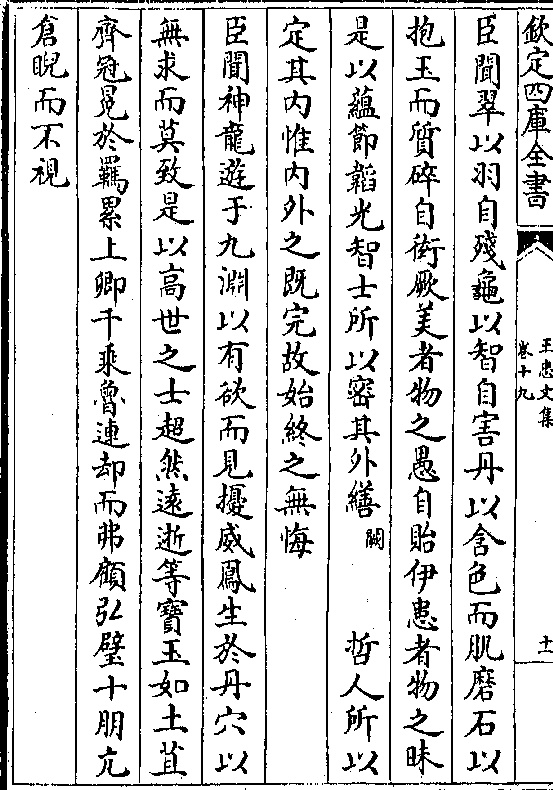 欽定四庫全書
王忠文集
卷十九
十一
臣聞翠以羽自殘龜以智自害丹以含色而肌磨石以
抱玉而質碎自衒厥美者物之愚自貽伊患者物之昧
是以蘊節韜光智士所以密其外繕闕哲人所以
定其内惟内外之既完故始終之無悔
臣聞神龍遊于九淵以有欲而見擾威鳳生於丹穴以
無求而莫致是以高世之士超然遠逝等寶玉如土苴
齊冠冕於羈累上卿千乘魯連却而弗顧弘璧十朋亢
倉睨而不視